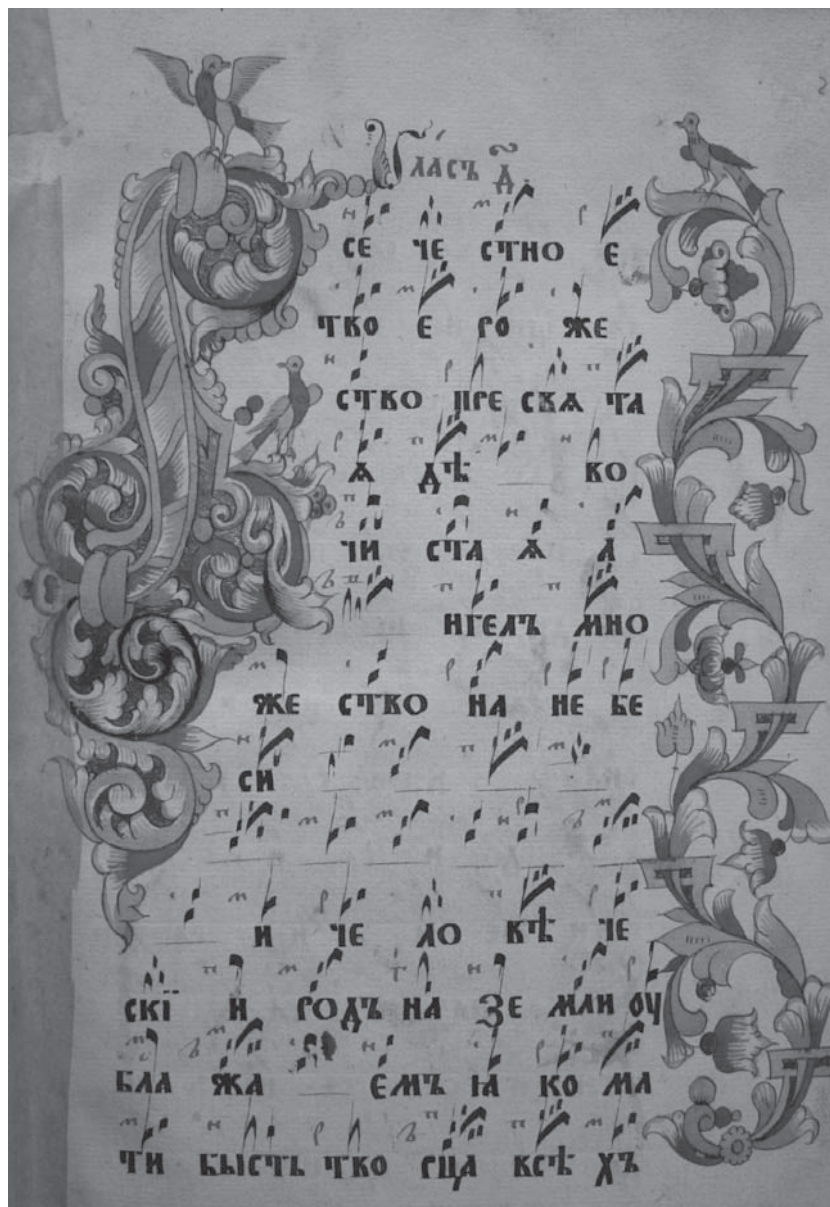 Гласъ д҃.
СЕ ЧЕ СТНО Е
ТВО Е РО ЖЕ
СТВО ПРЕ СВѦ ТА
Ѧ ДѢ ВО
ЧИ СТА Ѧ А
НГЕЛЪ МНО
ЖЕ СТВО НА НЕ БЕ
СИ
И ЧЕ ЛО ВѢ ЧЕ
СКЇ И РОДЪ НА ЗЕ МЛИ ОУ
БЛА ЖА ЕМЪ ꙖА КО МА
ТИ БЫСТЬ ТВО РЦА ВСѢ ХЪ